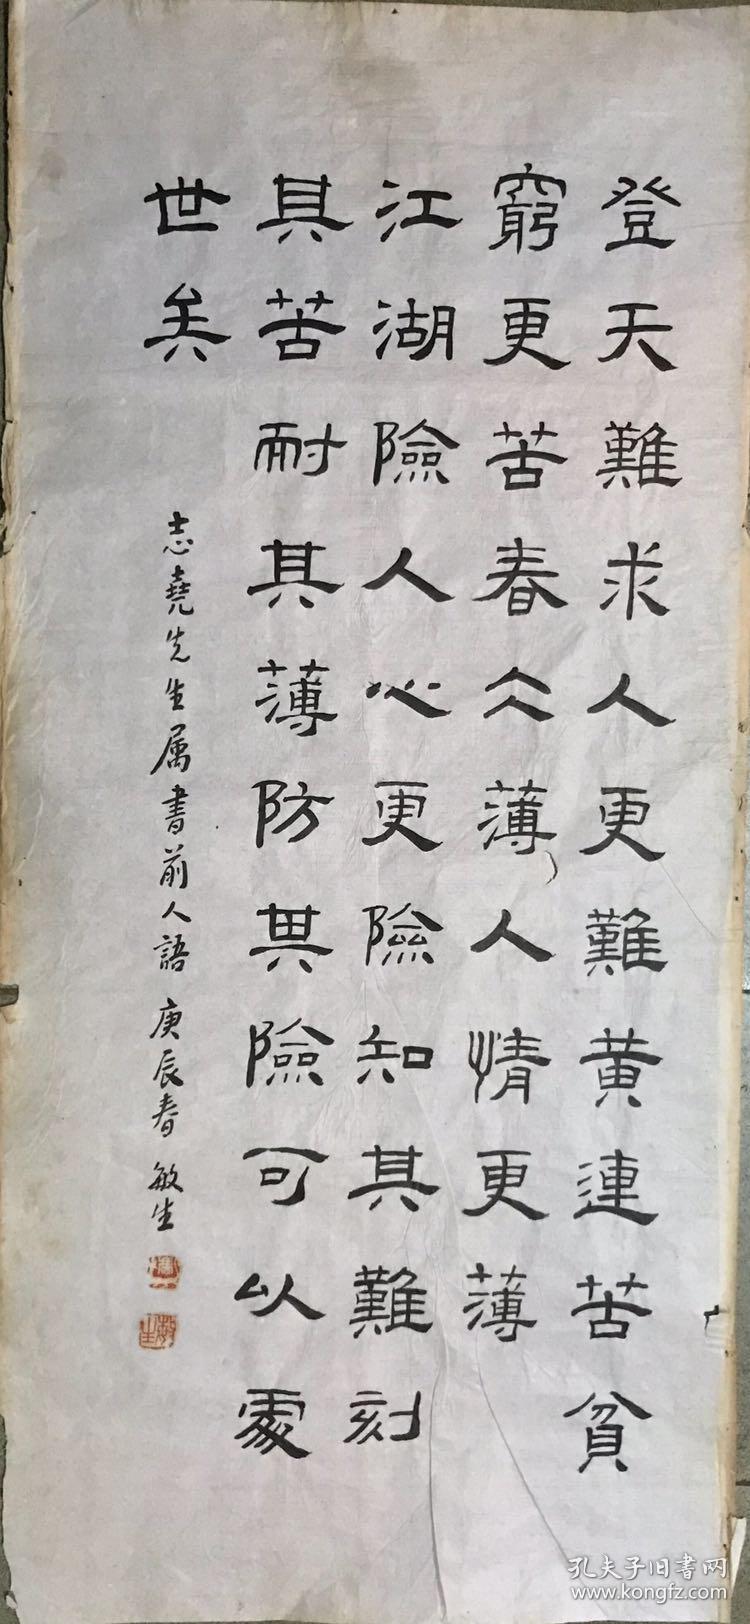 登天難求人更難黄連苦貧
窮更苦春仌薄人情更薄
江湖險人心更險知其難刻
其苦耐其薄防其險可以處
世矣
志堯先生属書前人語 庚辰春 敏生
敏生
孔夫子旧书网
www.kongfz.com